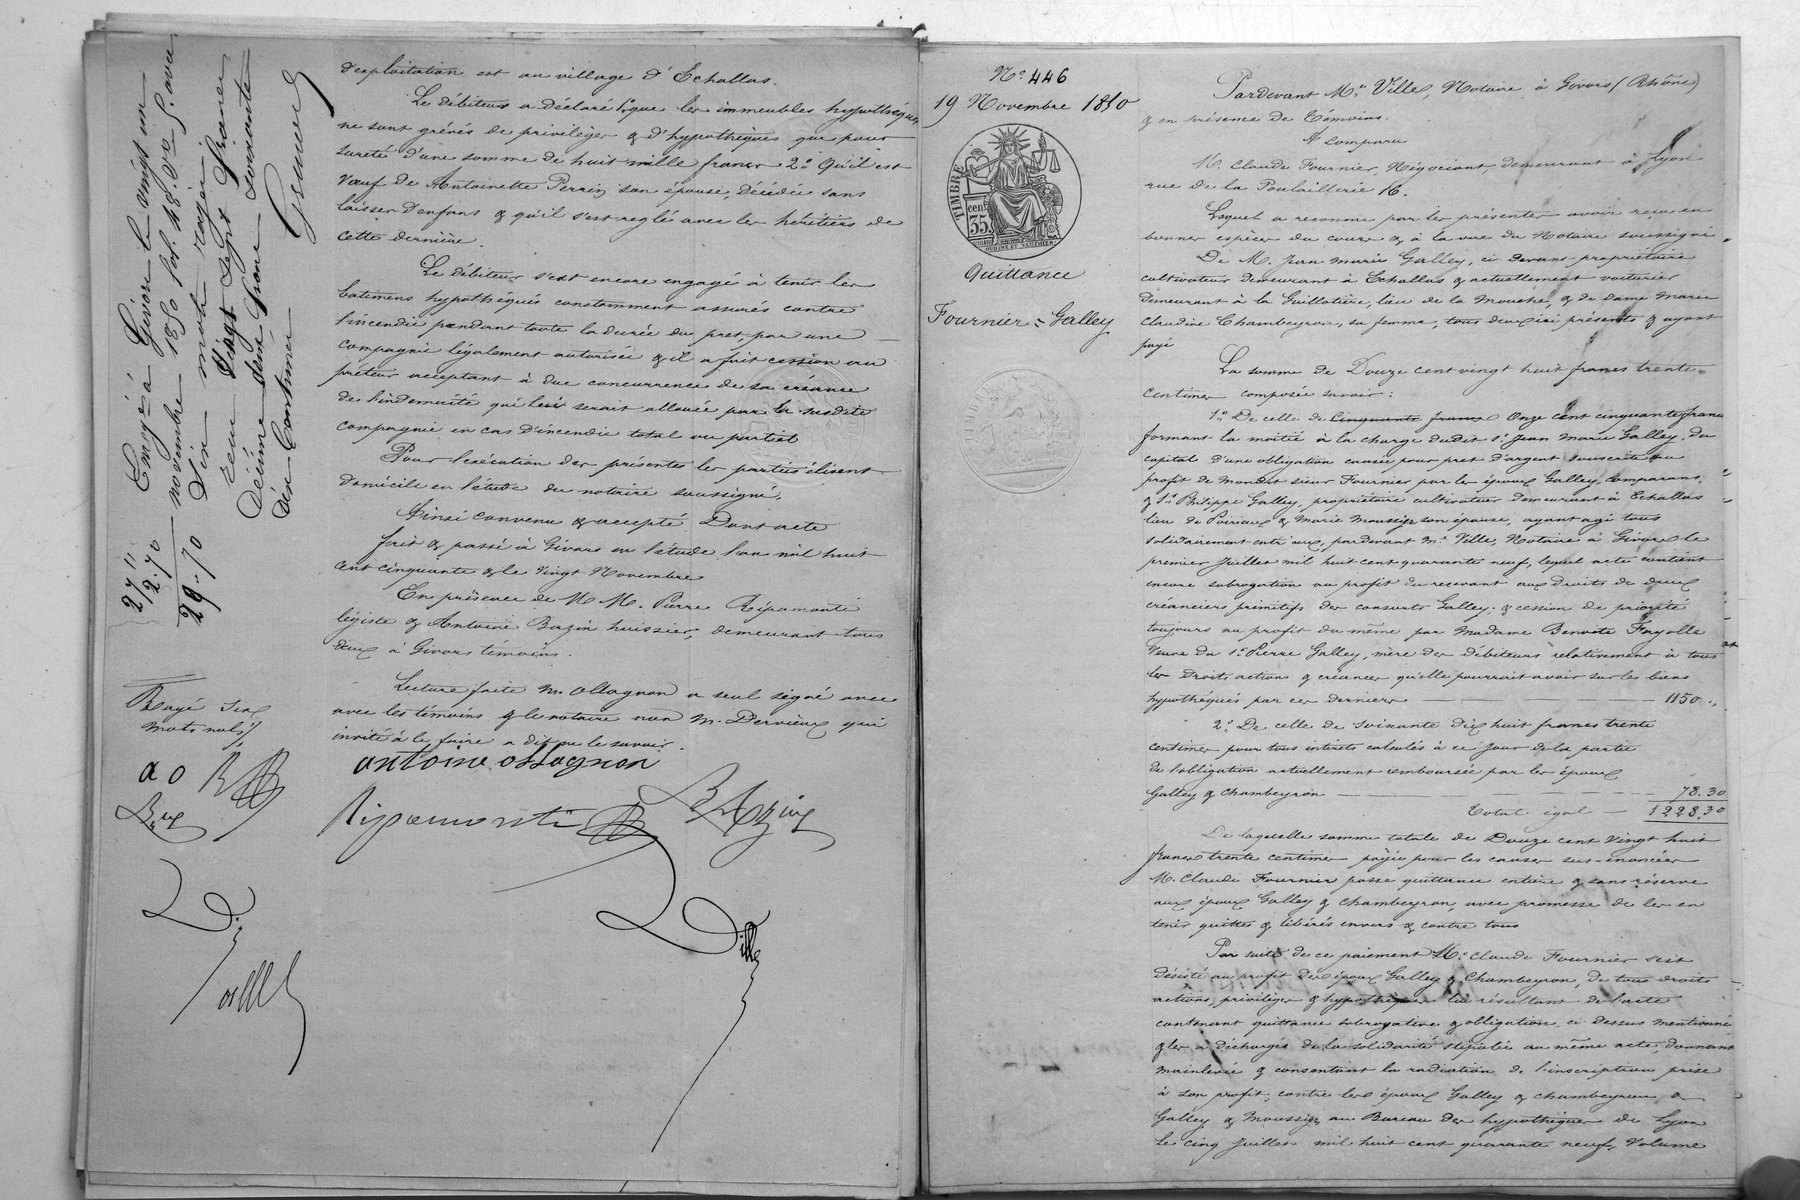 d'exploitation est au village d'Echallas.
Le débiteur a déclaré 1° que les immeubles hypothéqués
ne sont grévés de privilèges & d'hypothèques que pour
sureté d'une somme de huit mille francs 2° Qu'il est
Veuf de Antoinette Perrin, son épouse, décédée sans
laisser d'enfans & qu'il s'est reglé avec les héritiers de
cette dernière.
Le débiteur s'est encore engagé à tenir les
batimens hypothéqués constamment assurés contre
l'incendie pendant toute la durée du pret, par une
compagnie légalement autorisée & il a fait cession au
prêteur acceptant à due concurrence de sa créance
de l'indemnité qui leur serait allouée par la susdite
compagnie en cas d'incendie total ou partiel
Pour l'exécution des présentes les parties élisent
domicile en l'étude du notaire soussigné.
Ainsi convenu & accepté Dont acte
fait & passé à Givors en l'étude l'an mil huit
cent cinquante & le vingt Novembre
En présence de M.M. Pierre Ripamonti
légiste & Antoine Bazin huissier, demeurant tous
deux à Givors témoins.
Lecture faite M. Ollagnon a seul signé avec
avec les témoins & le notaire non M. Dervieux qui
invité à le faire a dit ne le savoir.
antoine ollagnon
Ripamonti
Bazin
Ville
Enregé à Givors le vingt un
novembre 1850 fol. 48. Vo C. 5. avec
Reçu Vingt sept francs
décime deux francs soixante
dix centimes
27 "
2.70
29.70
Rayé six
mots nuls
a o
R
Bzin
N° 446
19 Novembre 1850
TIMBRE
35 cent
OUDINÉ ET SAUTHIER
Quittance
Fournier = Galley
Pardevant Me Ville, Notaire à Givors (Rhône)
& en présence de Témoins.
A Comparu
M. Claude Fournier, Négociant, demeurant à Lyon
rue de la Poulaillerie 16.
Lequel a reconnu par les présentes avoir reçu en
bonnes espèces du cours & à la vue du Notaire soussigné
De M. Jean Marie Galley, ci devant propriétaire
cultivateur demeurant à Echallas & actuellement voiturier
demeurant à la Guillotière, lieu de la Mouche, & de Dame Marie
Claudine Chambeyron, sa femme, tous deux ici présents & ayant
payé
La somme de Douze cent vingt huit francs trente
centimes composée savoir:
1° De celle de cinquante francs Onze cent cinquante francs
formant la moitié à la charge dudit Sr Jean Marie Galley, du
capital d'une obligation causée pour pret d'argent souscrite au
profit de mondit sieur Fournier par les époux Galley, comparans,
& Sr Philippe Galley, propriétaire cultivateur demeurant à Echallas
lieu de Poirieux & Marie Moussier son épouse, ayant agi tous
solidairement entr'eux, pardevant Me Ville, Notaire à Givors le
premier Juillet mil huit cent quarante neuf, lequel acte contient
encore subrogation au profit du recevant aux Droits de deux
créanciers primitifs des consorts Galley; & cession de priorité
toujours au profit du même par Madame Benoite Fayolle
Veuve du Sr Pierre Galley, mère des débiteurs relativement à tous
les Droits, actions & créances qu'elle pourrait avoir sur les biens
hypothéqués par ces derniers — 1150 "
2° De celle de Soixante dix huit francs trente
centimes pour tous intérets calculés à ce jour de la partie
de l'obligation actuellement remboursée par les époux
Galley & Chambeyron — 78.30
Total égal — 1228,30
De laquelle somme totale de Douze cent vingt huit
francs trente centimes payée pour les causes sus-énoncées
M. Claude Fournier passe quittance entière & sans réserve
aux époux Galley & Chambeyron, avec promesse de les en
tenir quittes & libérés envers & contre tous
Par suite de ce paiement M. Claude Fournier s'est
désisté au profit des époux Galley & Chambeyron, de tous droits
actions, privilèges & hypothèques lui résultant de l'acte
contenant quittance subrogative & obligation ci dessus mentionné
& les a déchargés de la solidarité stipulée au même acte, donnant
mainlevée & consentant la radiation de l'inscription prise
à son profit, contre les époux Galley & Chambeyron &
Galley & Moussier au Bureau des hypothèques de Lyon
le cinq Juillet mil huit cent quarante neuf, Volume